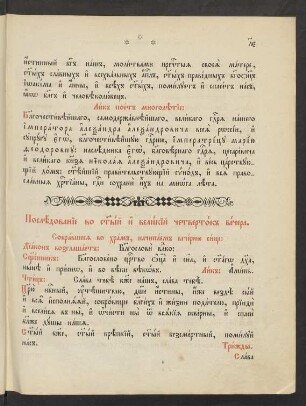 истинный бг҃ъ нашъ, молитвами пречⷭ҇тыя своеѧ̀ матере,
ст҃ыхъ славныхъ и всехвальныхъ апⷭ҇лъ, ст҃ыхъ праведныхъ бг҃оотєцъ
іѡакима и анны, и всѣхъ ст҃ыхъ, помилуетъ и спасетъ насъ,
ꙗкѡ бл҃гъ и человѣколюбецъ.
Ликъ поетъ многолѣтіе:
Благочестивѣйшаго, самодержавнѣйшаго, великаго гдⷭ҇рѧ нашего
імператора алеѯандра алеѯандровича всеѧ̀ рꙋссіи, и
сꙋпрꙋгꙋ єгѡ̀, благочестивѣйшꙋю гдⷭ҇рыню, імператрицꙋ марію
ѳеодорѡвнꙋ: наслѣдника єгѡ̀, благовѣрнаго гдⷭ҇рѧ, цесаревича
и великаго кнѧзѧ нікола́ѧ алеѯандровича, и весь царствꙋю-
щій домъ, ст҃ѣйшій правительствꙋющій сѵнодъ, и всѧ̀ право-
славныѧ хрⷭ҇тіаны, гдⷭ҇и сохрани ихъ на многа лѣта.
Послѣдованіе во ст҃ый и великій четвертокъ вечера.
Собравшесѧ во храмъ, начинаемъ вечерню сице:
Діаконъ возглашаетъ: Благослови влⷣко:
Сщ҃енникъ: Благословено црⷭ҇тво оц҃а и сн҃а, и ст҃агѡ дх҃а,
нынѣ и приснѡ, и во вѣки вѣкѡвъ. Ликъ: Аминь.
Чтецъ: Слава тебѣ бж҃е нашъ, слава тебѣ.
Цр҃ю нбⷭ҇ный, оутѣшителю, дш҃е истины, иже вездѣ сый
и всѧ̀ исполнѧѧй, сокровище благихъ и жизни подателю, прїиди
и вселисѧ въ ны, и очисти ны ѿ всѧкїѧ скверны, и спаси
бл҃же дꙋшы нашѧ.
Ст҃ый бж҃е, ст҃ый крѣпкій, ст҃ый безсмертный, помилꙋй
насъ. Трижды.
Слава